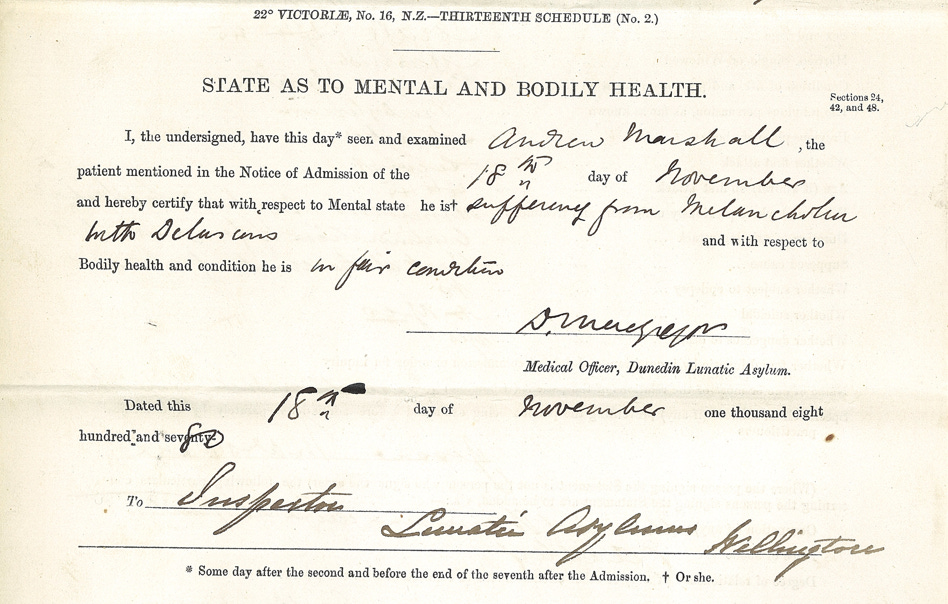 22° VICTORIÆ, No. 16, N.Z.—THIRTEENTH SCHEDULE (No. 2.)
STATE AS TO MENTAL AND BODILY HEALTH.
Sections 24,
42, and 48.
I, the undersigned, have this day* seen and examined Andrew Marshall, the
patient mentioned in the Notice of Admission of the 18th day of November
and hereby certify that with respect to Mental state he is† suffering from Melancholia
with Delusions and with respect to
Bodily health and condition he is in fair condition
D. Macgregor
Medical Officer, Dunedin Lunatic Asylum.
Dated this 18th day of November one thousand eight
hundred and seventy- 80
To Inspector
Lunatic Asylums Wellington
* Some day after the second and before the end of the seventh after the Admission. † Or she.